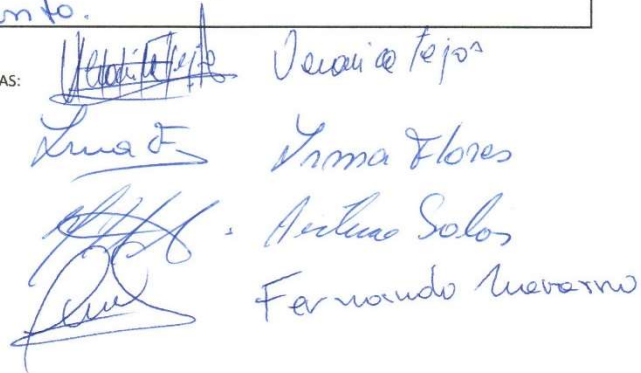 nto.
AS: Veronica Tejos
Irma F. Irma Flores
Arturo Salas
Fernando Navarro